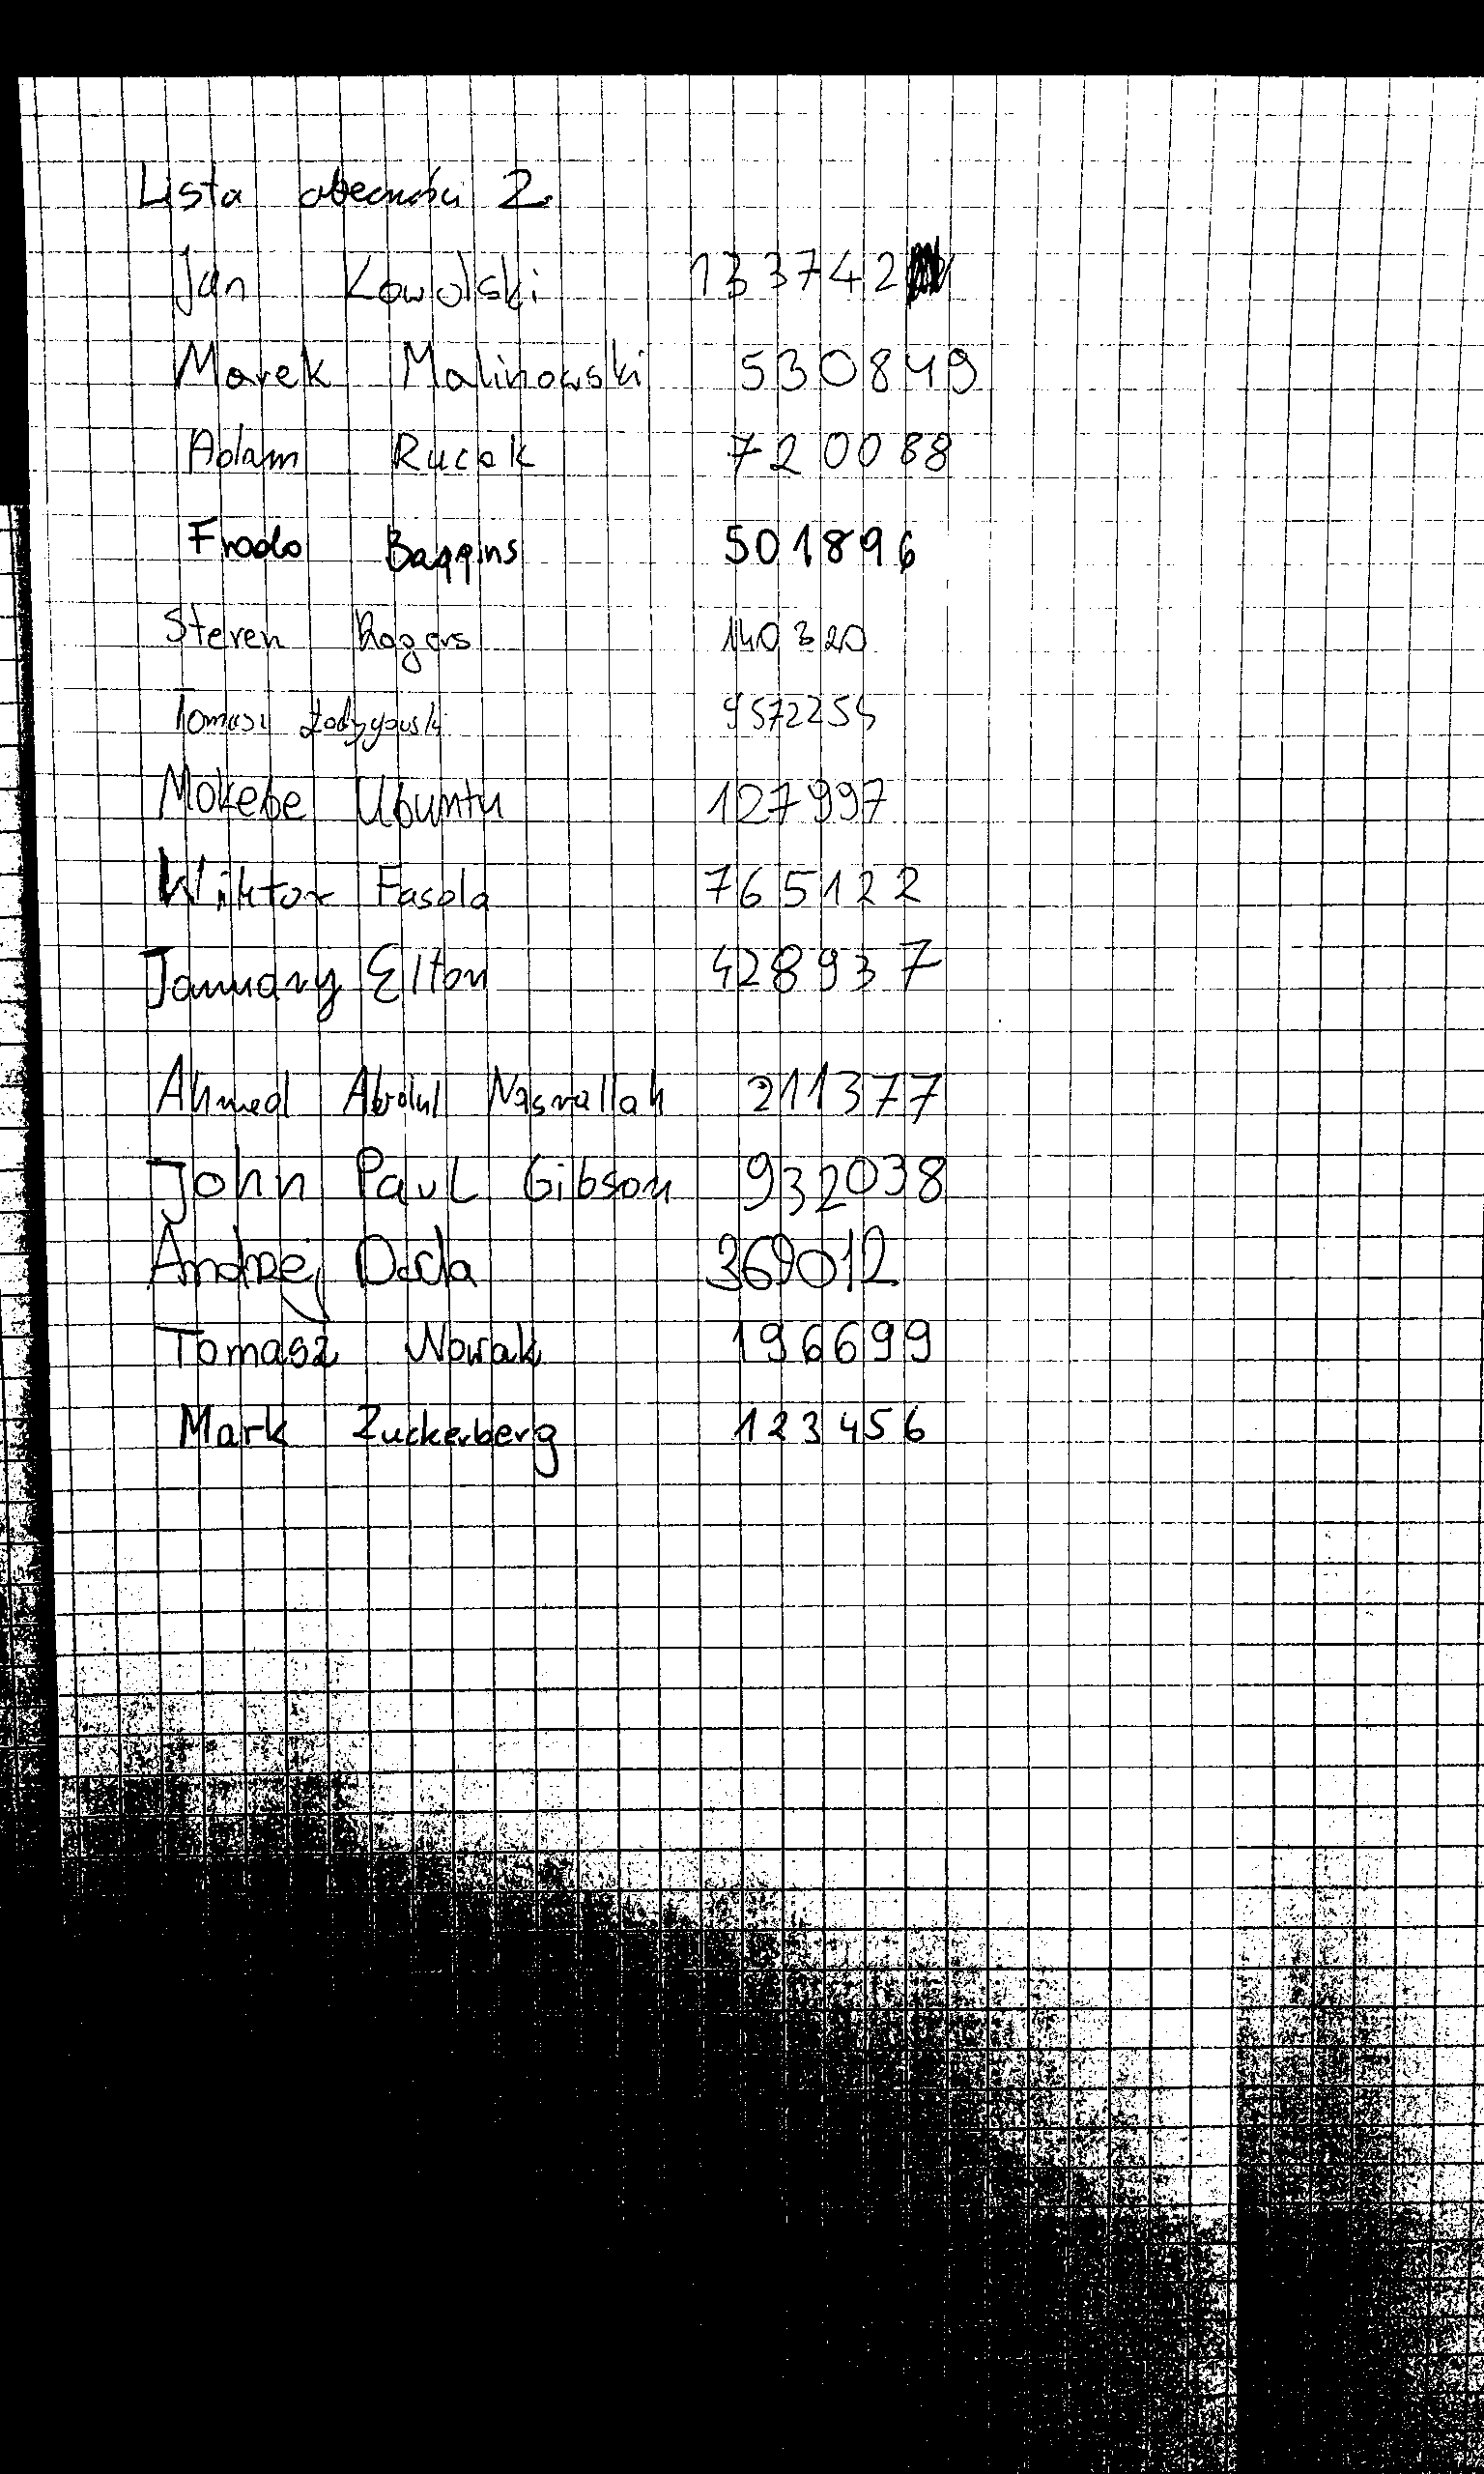 Lista obecności 2.
Jan Kowalski 133742
Marek Malinowski 530849
Adam Rucak 720088
Frodo Baggins 501896
Steven Rogers 140320
Tomasz
Mokebe Ubuntu 127997
Wiktor Fasola 765122
January Elton 428937
Ahmed Abdul Nasrallah 211377
John Paul Gibson 932038
Andrzej Dada 369012
Tomasz Nowak 196699
Mark Zuckerberg 123456